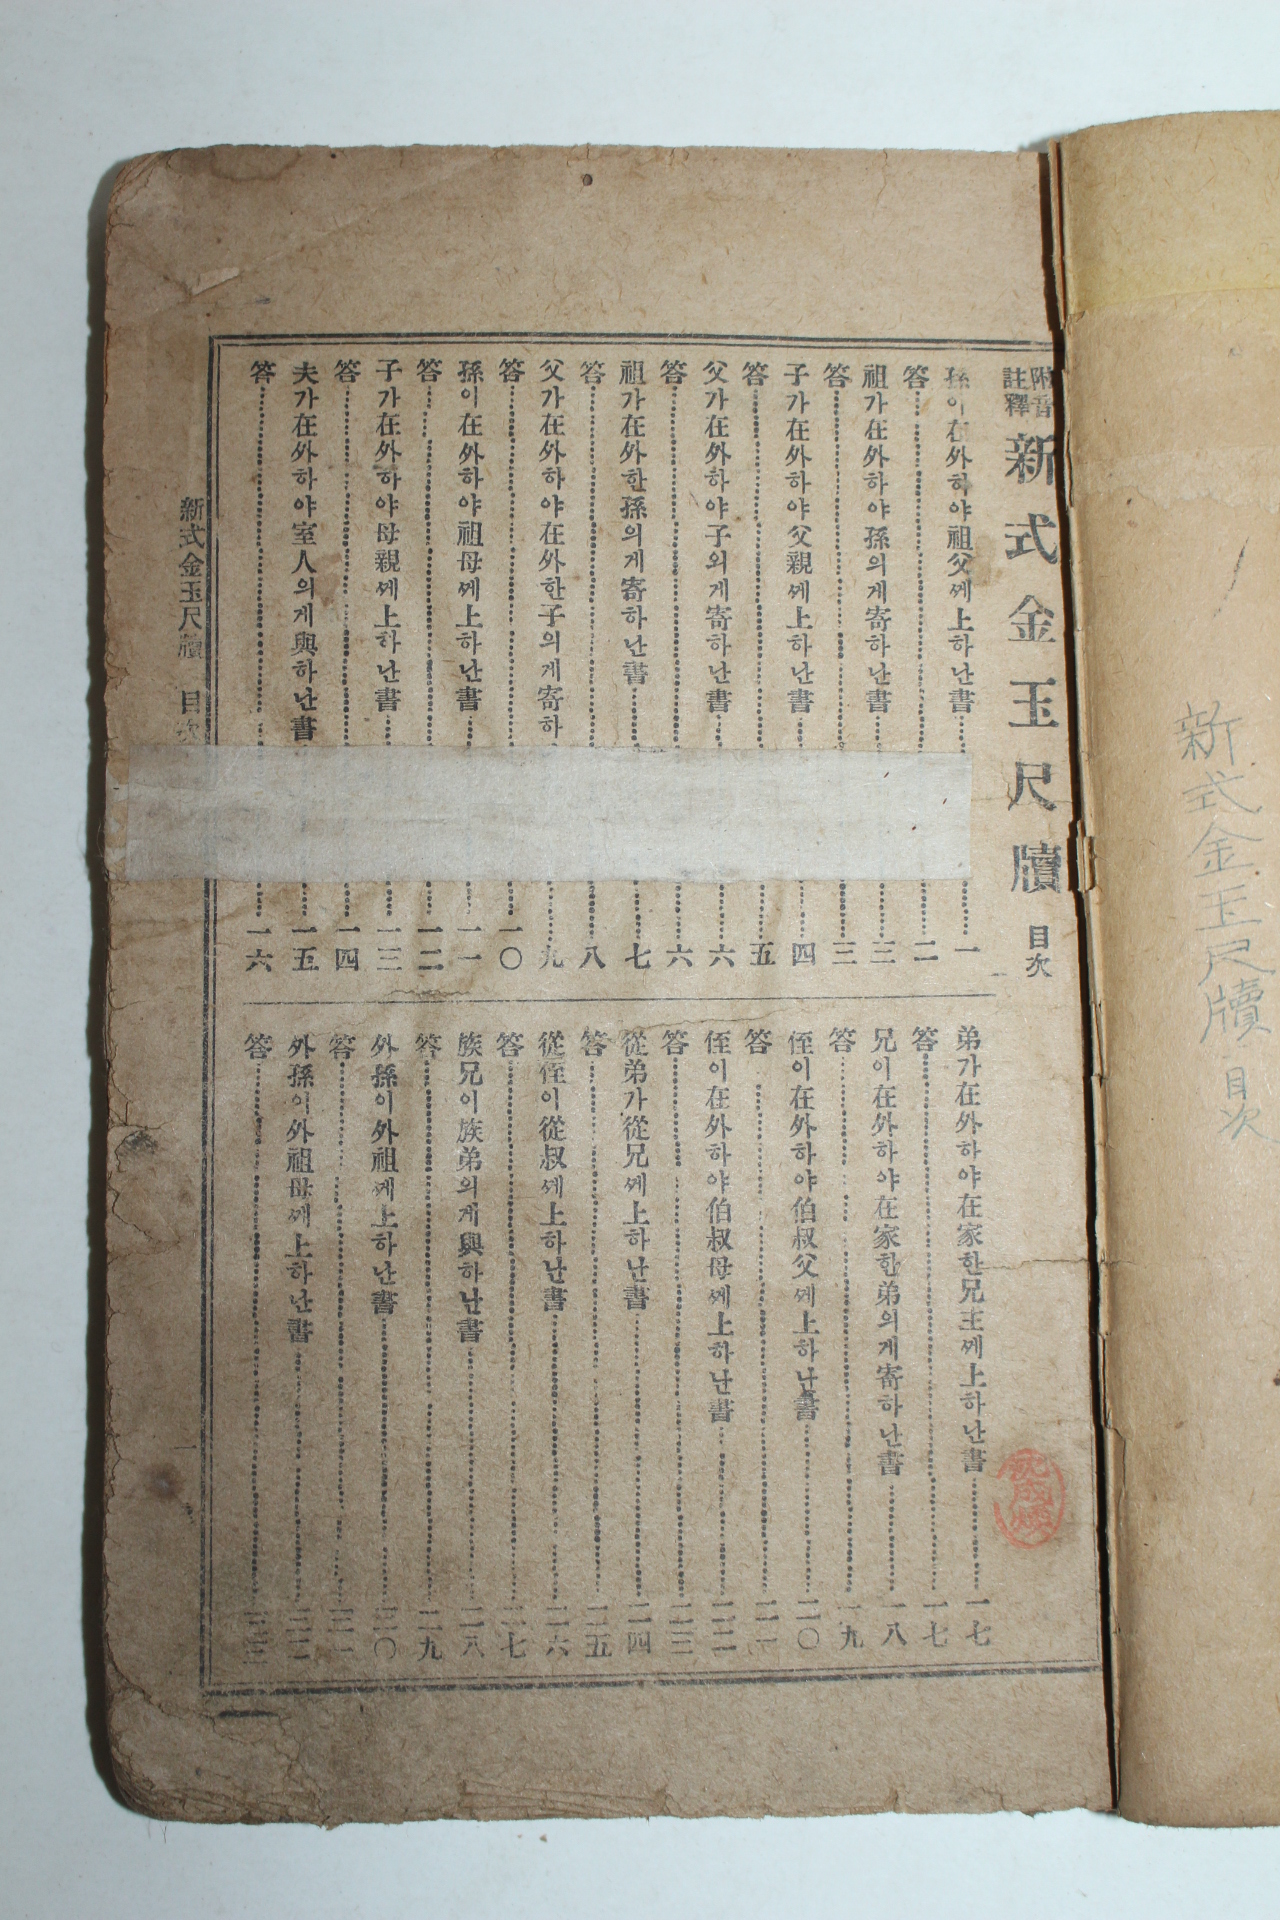 附音
註釋
新式金玉尺牘 目次
孫이在外하야祖父ᄭᅦ上하난書 一
答 二
祖가在外하야孫의게寄하난書 三
答 三
子가在外하야父親ᄭᅦ上하난書 四
答 五
父가在外하야子의게寄하난書 六
答 六
祖가在外한孫의게寄하난書 七
答 八
父가在外하야在外한子의게寄하 九
答 一〇
孫이在外하야祖母ᄭᅦ上하난書 一一
答 一二
子가在外하야母親ᄭᅦ上하난書 一三
答 一四
夫가在外하야室人의게與하난書 一五
答 一六
弟가在外하야在家한兄主ᄭᅦ上하난書 一七
答 一七
兄이在外하야在家한弟의게寄하난書 一八
答 一九
侄이在外하야伯叔父ᄭᅦ上하난書 二〇
答 二一
侄이在外하야伯叔母ᄭᅦ上하난書 二二
答 二三
從弟가從兄ᄭᅦ上하난書 二四
答 二五
從侄이從叔ᄭᅦ上하난書 二六
答 二七
族兄이族弟의게與하난書 二八
答 二九
外孫이外祖ᄭᅦ上하난書 三〇
答 三一
外孫이外祖母ᄭᅦ上하난書 三二
答 三三
新式金玉尺牘 目次 一
新式金玉尺牘 目次